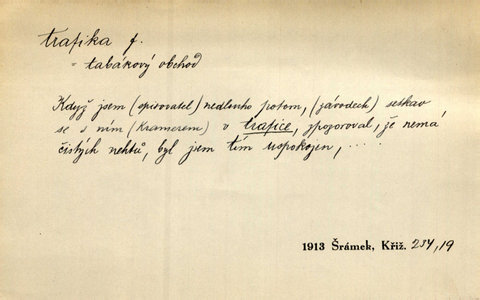 trafika f.
= tabákový obchod
Když jsem (opisovatel) nedlouho potom, (závodech) setkav
se s ním (Kramerem) v trafice, zpozoroval, že nemá
čistých nehtů, byl jsem tím uspokojen, ....
1913 Šrámek, Křiž. 234,19